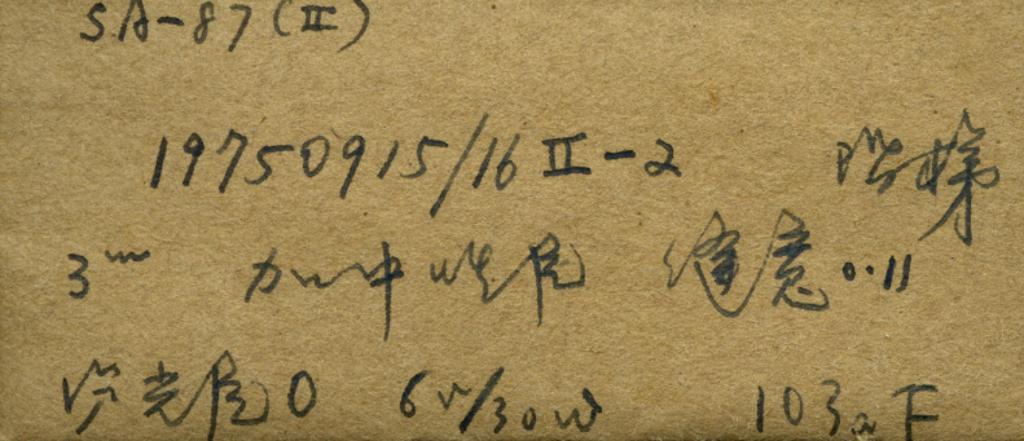 SA-87(II)
19750915/16 II-2 阶梯
3ᵐ 加中性 缝宽 0.11
光 0 6V/30W 103aF